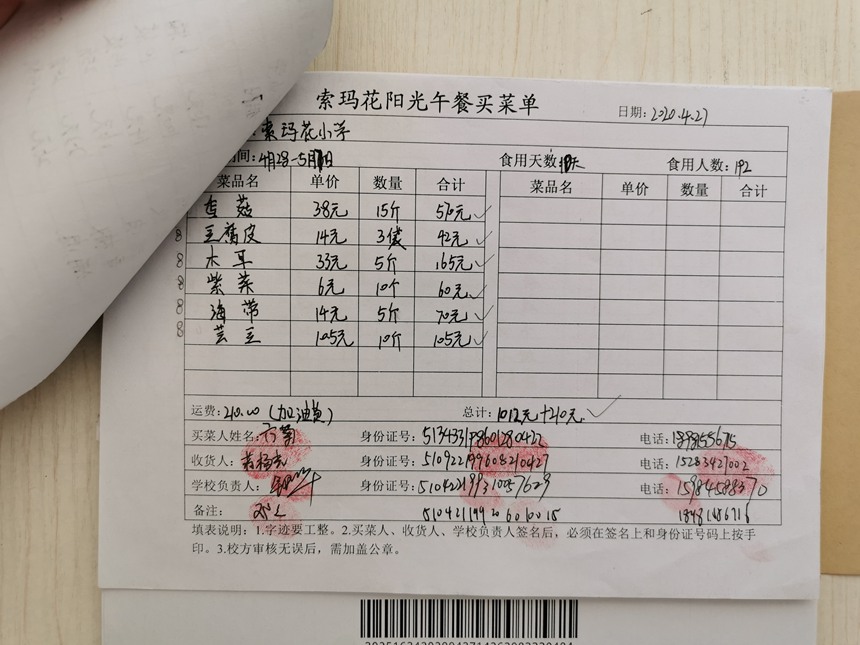 索玛花阳光午餐买菜单
日期: 2020.4.27
索玛花小学
间: 4月28-5月 日 食用天数: 天 食用人数: 192
菜品名 单价 数量 合计 菜品名 单价 数量 合计
香菇 38元 15斤 570元 ✓
8 豆腐皮 14元 3袋 42元 ✓
8 木耳 33元 5斤 165元 ✓
8 紫菜 6元 10个 60元 ✓
8 海带 14元 5斤 70元 ✓
8 芸豆 10.5元 10斤 105元 ✓
运费: 210.00 (加油费) 总计: 1012元+210元 ✓
买菜人姓名: 身份证号: 电话:
收货人: 身份证号: 510922199608210427 电话: 15283427002
学校负责人: 身份证号: 电话: 15984588370
备注: 510421199206010015 18481186716
填表说明: 1.字迹要工整。2.买菜人、收货人、学校负责人签名后，必须在签名上和身份证号码上按手
印。3.校方审核无误后，需加盖公章。